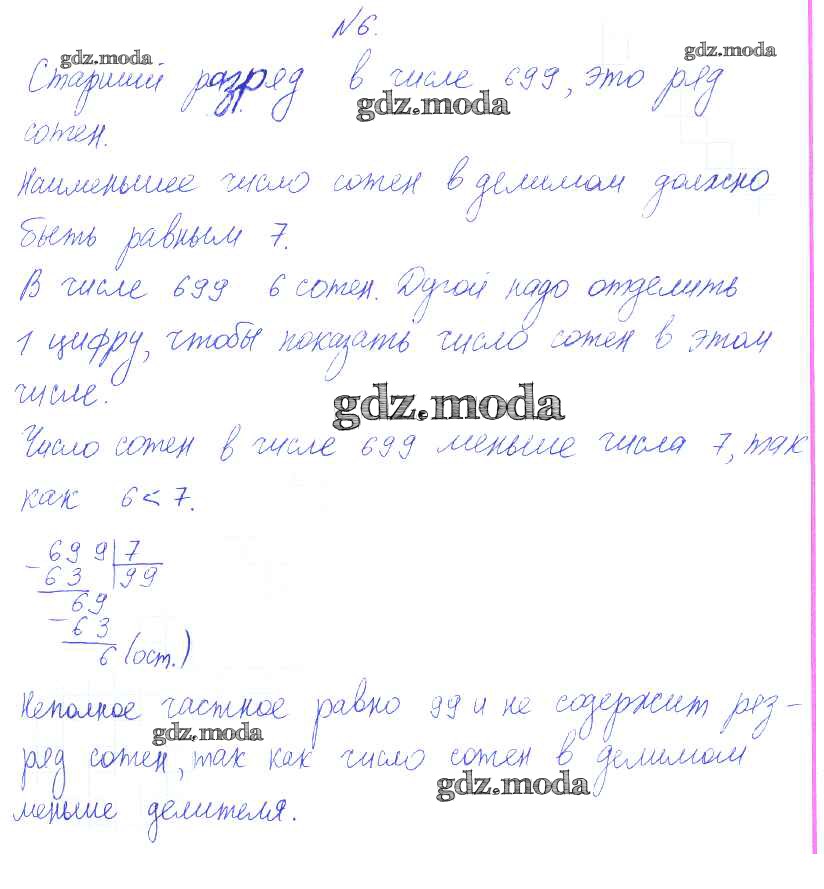 №6.
gdz.moda gdz.moda
Старший разряд в числе 699, это ряд
gdz.moda
сотен.
Наименьшее число сотен в делимом должно
быть равным 7.
В числе 699 6 сотен. Дугой надо отделить
1 цифру, чтобы показать число сотен в этом
числе.
gdz.moda
Число сотен в числе 699 меньше числа 7, так
как 6 < 7.
699 | 7
- 63 | 99
69
- 63
6 (ост.)
Неполное частное равно 99 и не содержит раз-
gdz.moda
ряд сотен, так как число сотен в делимом
gdz.moda
меньше делителя.